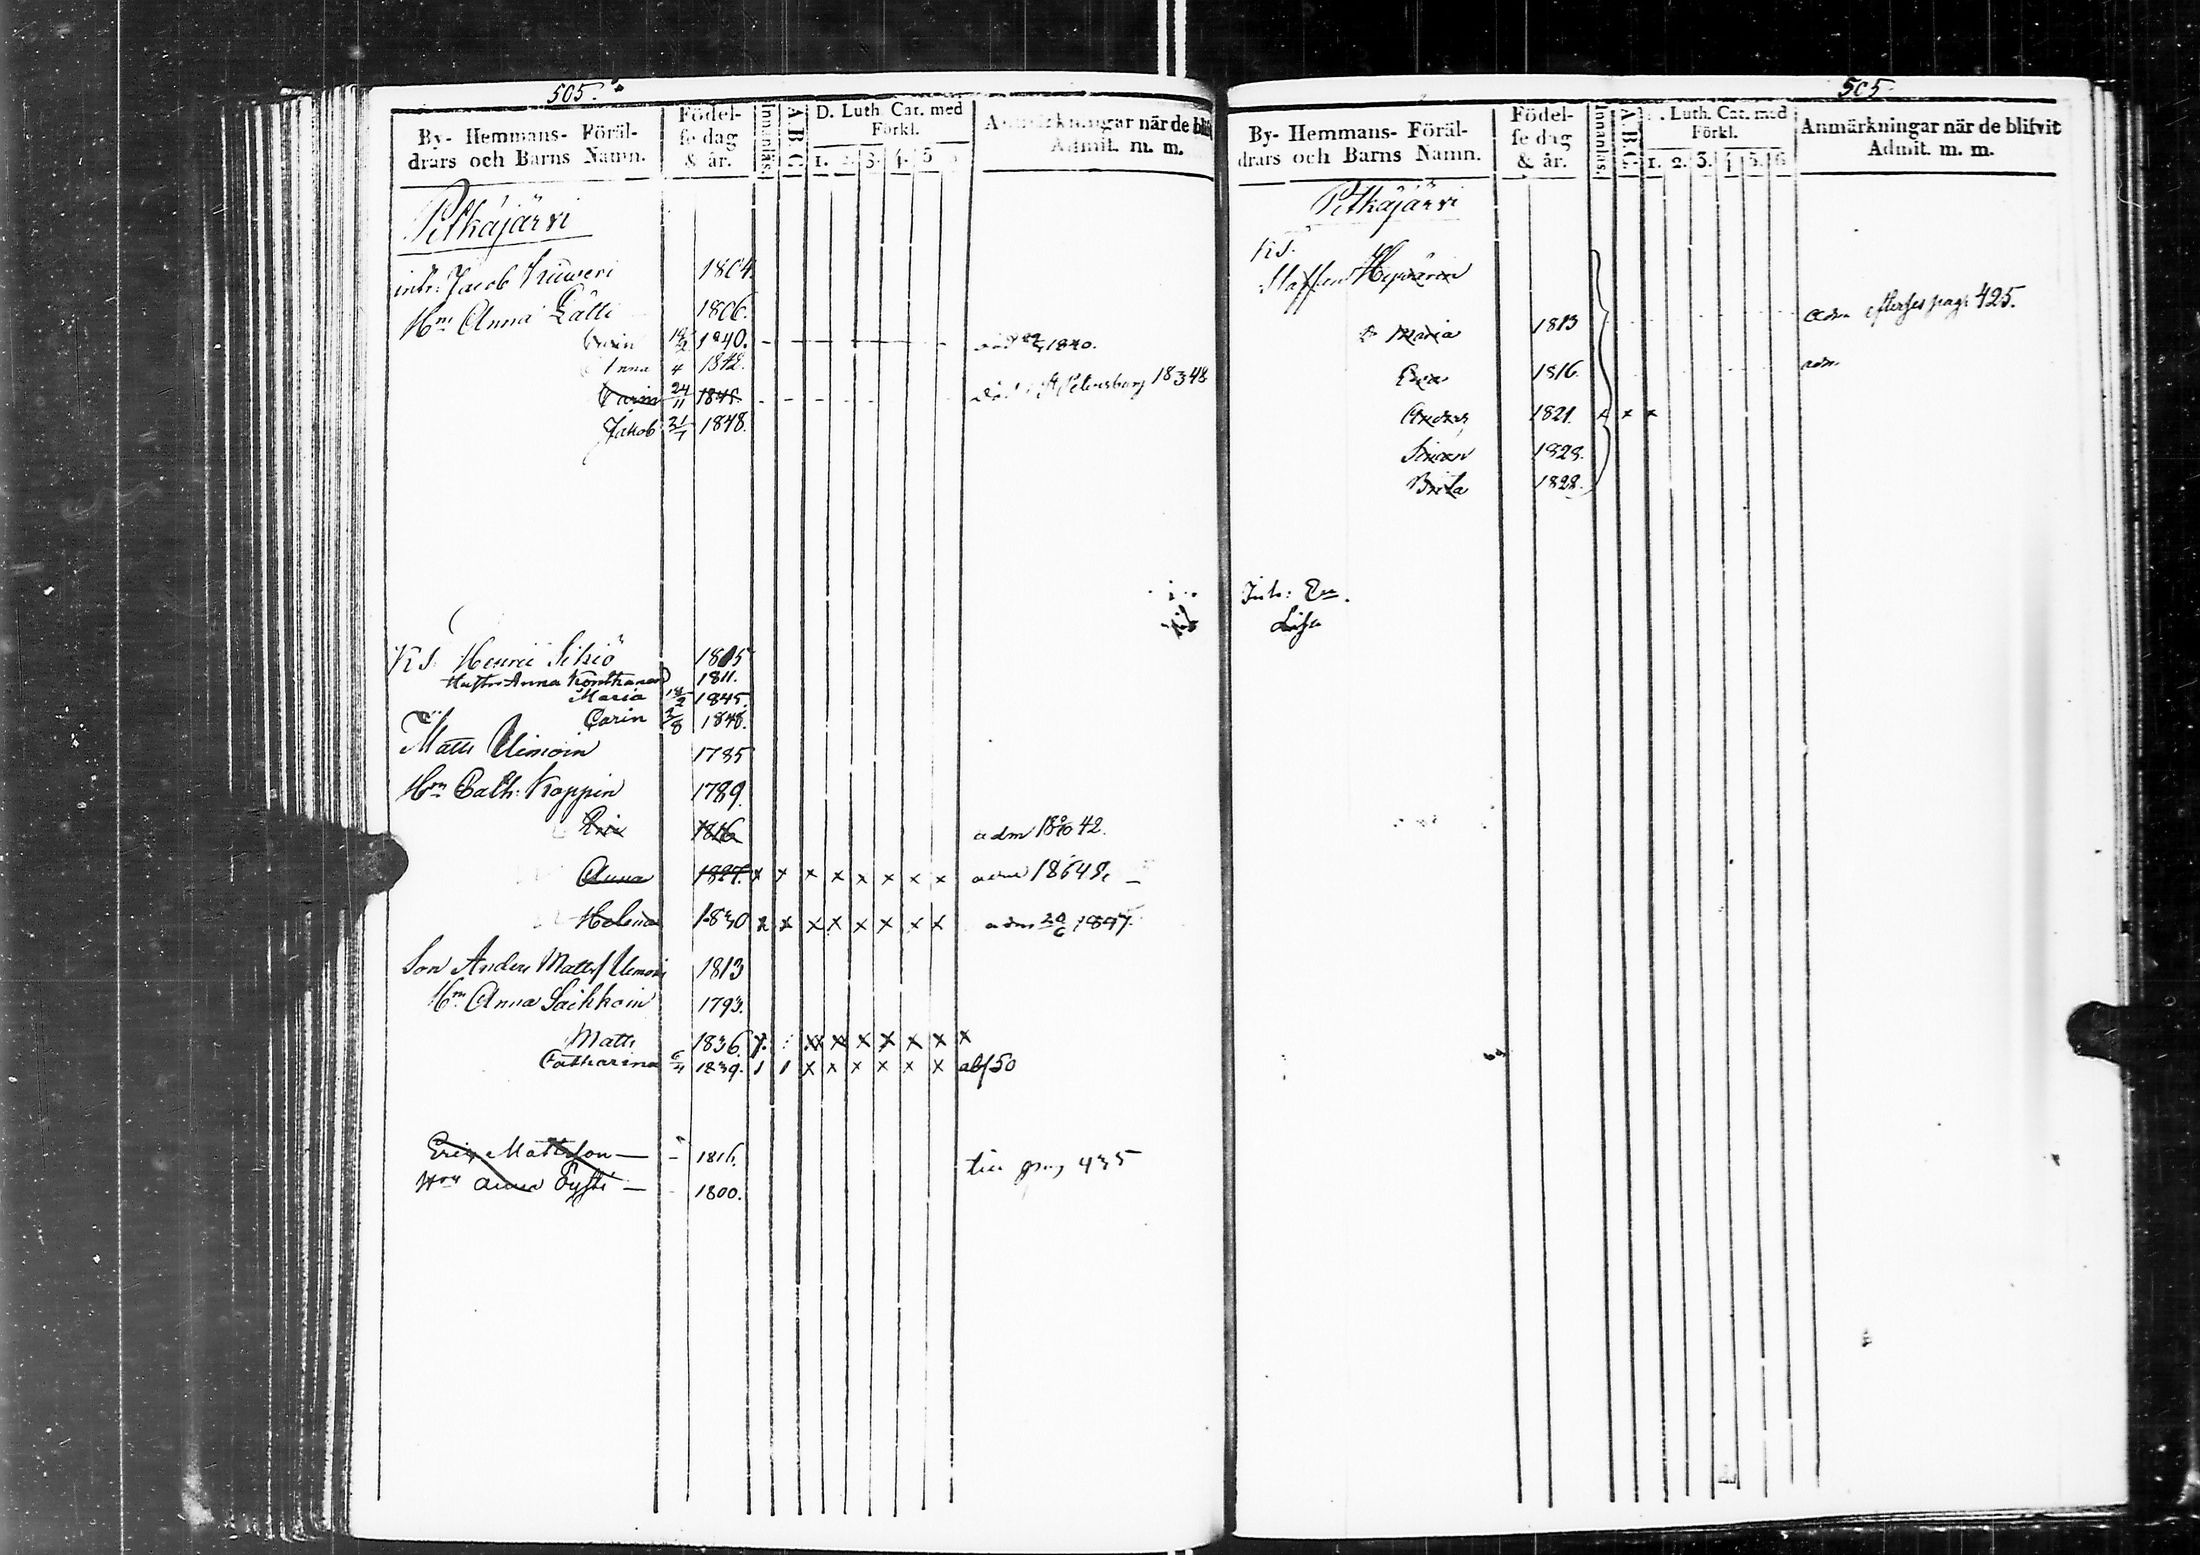 505.
By- Hemmans- Föräl-
drars och Barns Namn.
Födel-
se dag
& år.
Innanläs.
A B C.
D. Luth. Cat. med
Förkl.
1. 2. 3. 4. 5
Anmärkningar när de blifv
Admit. m. m.
Pitkäjärvi
inh: Jacob 1804
Hm Anna Lätti 1806.
1840. 1840.
Anna 4 1842.
Carin 24/11 1845. död i St Petersburg 18 3 48
Jakob 31/7 1848.
KS. Henric Sikiö 1815
Hustru Anna Konthanen 1811.
Maria 18/2 1845.
Carin 3/8 1848.
Matts Uimoin 1785
Hm Cath: Koppin 1789.
1816 adm 18 9/10 42.
Anna 1827. x x x x x x x x adm 18
Helena 1830 x x x x x x x x adm 20/6 1847.
Son Anders Matts Uimoin 1813
Hm Anna Saikkoin 1793.
Matts 1836. x x x x x x x
Catharina 6/4 1839. 1 1 x x x x x x abs 50
Eric Mattsson — 1816. till pag 435
Hm Anna — 1800.
505
By- Hemmans- Föräl-
drars och Barns Namn.
Födel-
se dag
& år.
Innanläs.
A B C.
Luth. Cat. med
Förkl.
1. 2. 3. 4. 5. 6
Anmärkningar när de blifvit
Admit. m. m.
Pitkäjärvi
KS.
Staffan Hyvärin
Maria 1813 adm efterses pag. 425.
Eva 1816. adm
Anders 1821. x x x
Simon 1828.
Brita 1828.
Inh: Eva
Lisa